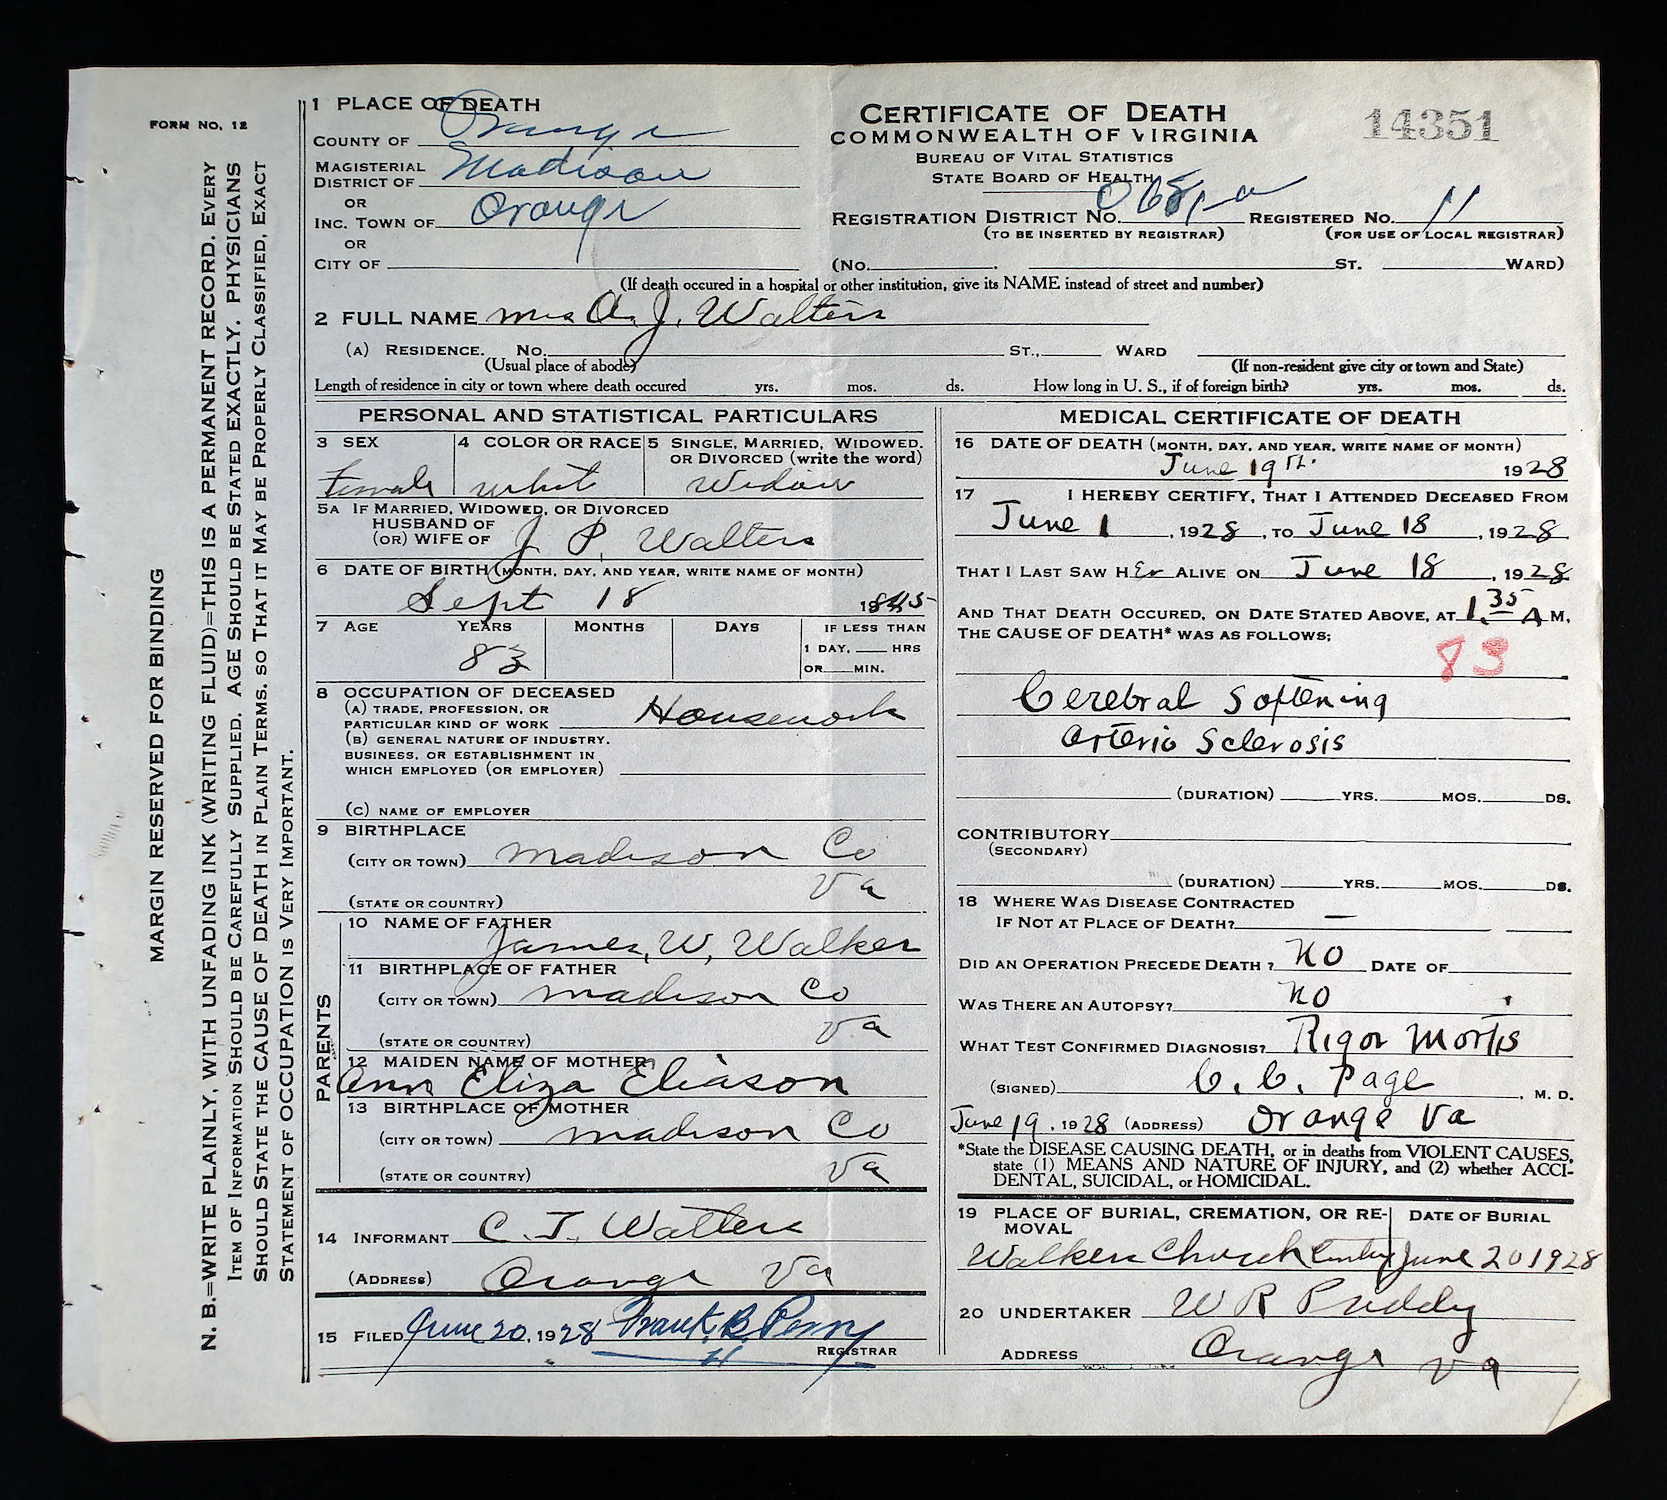 FORM NO. 12
MARGIN RESERVED FOR BINDING
N. B.=WRITE PLAINLY, WITH UNFADING INK (WRITING FLUID)=THIS IS A PERMANENT RECORD. EVERY
ITEM OF INFORMATION SHOULD BE CAREFULLY SUPPLIED. AGE SHOULD BE STATED EXACTLY. PHYSICIANS
SHOULD STATE THE CAUSE OF DEATH IN PLAIN TERMS, SO THAT IT MAY BE PROPERLY CLASSIFIED, EXACT
STATEMENT OF OCCUPATION IS VERY IMPORTANT.
1 PLACE OF DEATH
COUNTY OF Orange
MAGISTERIAL DISTRICT OF Madison
OR
INC. TOWN OF Orange
OR
CITY OF
CERTIFICATE OF DEATH
COMMONWEALTH OF VIRGINIA
BUREAU OF VITAL STATISTICS
STATE BOARD OF HEALTH
14351
REGISTRATION DISTRICT NO. REGISTERED NO. 11
(TO BE INSERTED BY REGISTRAR) (FOR USE OF LOCAL REGISTRAR)
(No. ST. WARD)
(If death occured in a hospital or other institution, give its NAME instead of street and number)
2 FULL NAME Mrs A. J. Walters
(A) RESIDENCE. No. ST., WARD
(Usual place of abode) (If non-resident give city or town and State)
Length of residence in city or town where death occured yrs. mos. ds. How long in U. S., if of foreign birth? yrs. mos. ds.
PERSONAL AND STATISTICAL PARTICULARS
3 SEX 4 COLOR OR RACE 5 SINGLE, MARRIED, WIDOWED, OR DIVORCED (write the word)
Female whit Widow
5A IF MARRIED, WIDOWED, OR DIVORCED
HUSBAND OF
(OR) WIFE OF J. P. Walters
6 DATE OF BIRTH (MONTH, DAY, AND YEAR, WRITE NAME OF MONTH)
Sept 18 1845
7 AGE YEARS MONTHS DAYS IF LESS THAN
1 DAY, HRS
OR MIN.
83
8 OCCUPATION OF DECEASED
(A) TRADE, PROFESSION, OR
PARTICULAR KIND OF WORK Housework
(B) GENERAL NATURE OF INDUSTRY,
BUSINESS, OR ESTABLISHMENT IN
WHICH EMPLOYED (OR EMPLOYER)
(C) NAME OF EMPLOYER
9 BIRTHPLACE
(CITY OR TOWN) Madison Co
(STATE OR COUNTRY) Va
PARENTS
10 NAME OF FATHER
James, W, Walker
11 BIRTHPLACE OF FATHER
(CITY OR TOWN) Madison Co
(STATE OR COUNTRY) Va
12 MAIDEN NAME OF MOTHER
Ann Eliza Eliason
13 BIRTHPLACE OF MOTHER
(CITY OR TOWN) Madison Co
(STATE OR COUNTRY) Va
14 INFORMANT C. J. Walters
(ADDRESS) Orange Va
15 FILED June 20, 1928 Frank. B. Perry
REGISTRAR
MEDICAL CERTIFICATE OF DEATH
16 DATE OF DEATH (MONTH, DAY, AND YEAR, WRITE NAME OF MONTH)
June 19th. 1928
17 I HEREBY CERTIFY, THAT I ATTENDED DECEASED FROM
June 1, 1928, TO June 18, 1928.
THAT I LAST SAW HEr ALIVE ON June 18, 1928
AND THAT DEATH OCCURED, ON DATE STATED ABOVE, AT 1.35 A M.
THE CAUSE OF DEATH* WAS AS FOLLOWS:
83
Cerebral Softening
Arterio Sclerosis
(DURATION) YRS. MOS. DS.
CONTRIBUTORY
(SECONDARY)
(DURATION) YRS. MOS. DS.
18 WHERE WAS DISEASE CONTRACTED
IF NOT AT PLACE OF DEATH? —
DID AN OPERATION PRECEDE DEATH? NO DATE OF
WAS THERE AN AUTOPSY? NO
WHAT TEST CONFIRMED DIAGNOSIS? Rigor Mortis
(SIGNED) C. C. Page, M. D.
June 19, 1928 (ADDRESS) Orange Va
*State the DISEASE CAUSING DEATH, or in deaths from VIOLENT CAUSES,
state (1) MEANS AND NATURE OF INJURY, and (2) whether ACCI-
DENTAL, SUICIDAL, or HOMICIDAL.
19 PLACE OF BURIAL, CREMATION, OR RE- DATE OF BURIAL
MOVAL
Walkers Church June 20 1928
20 UNDERTAKER W R Priddy
ADDRESS Orange Va